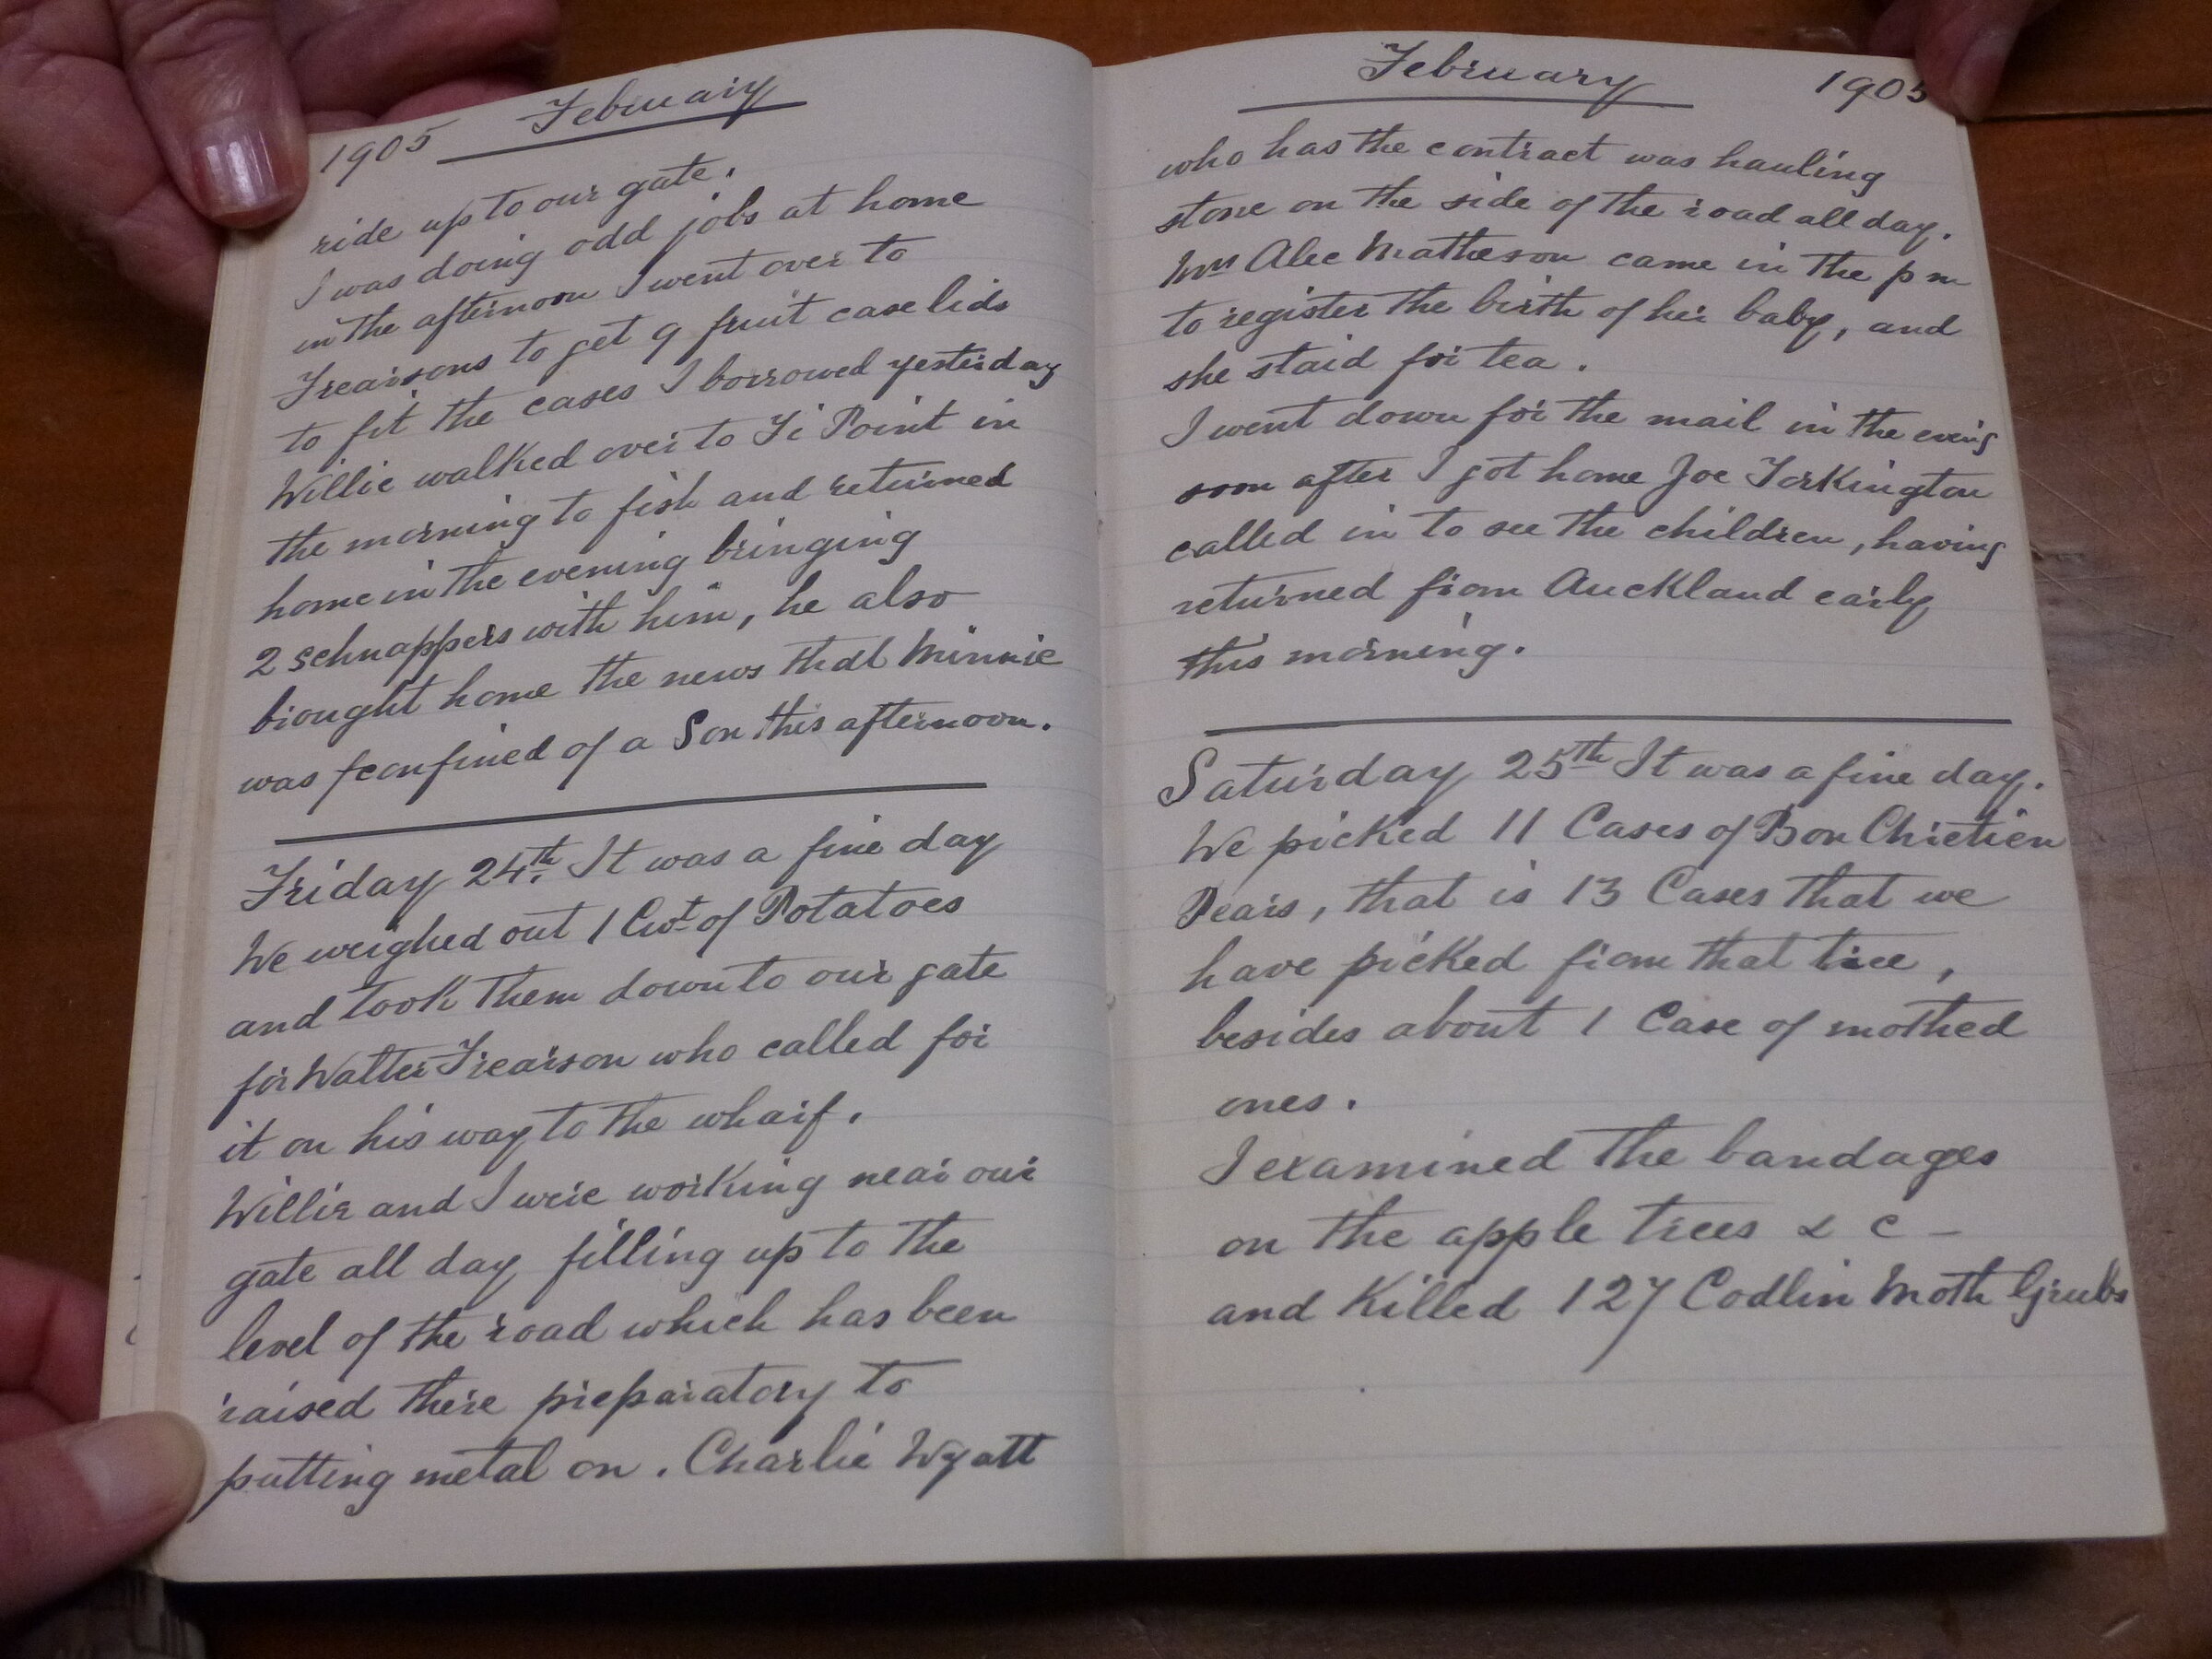 1905 February
ride up to our gate.
I was doing odd jobs at home
in the afternoon I went over to
Frearsons to get 9 fruit case lids
to fit the cases I borrowed yesterday
Willie walked over to Ti Point in
the morning to fish and returned
home in the evening bringing
2 schnappers with him, he also
brought home the news that Minnie
was confined of a Son this afternoon.
Friday 24th. It was a fine day
We weighed out 1 Cwt of Potatoes
and took them down to our gate
for Walter Frearson who called for
it on his way to the wharf.
Willie and I were working near our
gate all day filling up to the
level of the road which has been
raised there preparatory to
putting metal on. Charlie Wyatt
February 1905
who has the contract was hauling
stone on the side of the road all day.
Mrs Alec Matheson came in the pm
to register the birth of her baby, and
she staid for tea.
I went down for the mail in the eveing
soon after I got home Joe Torkington
called in to see the children, having
returned from Auckland early
this morning.
Saturday 25th It was a fine day.
We picked 11 Cases of Bon Chretien
Pears, that is 13 Cases that we
have picked from that tree,
besides about 1 Case of mothed
ones.
I examined the bandages
on the apple trees & c -
and Killed 127 Codlin Moth Grubs